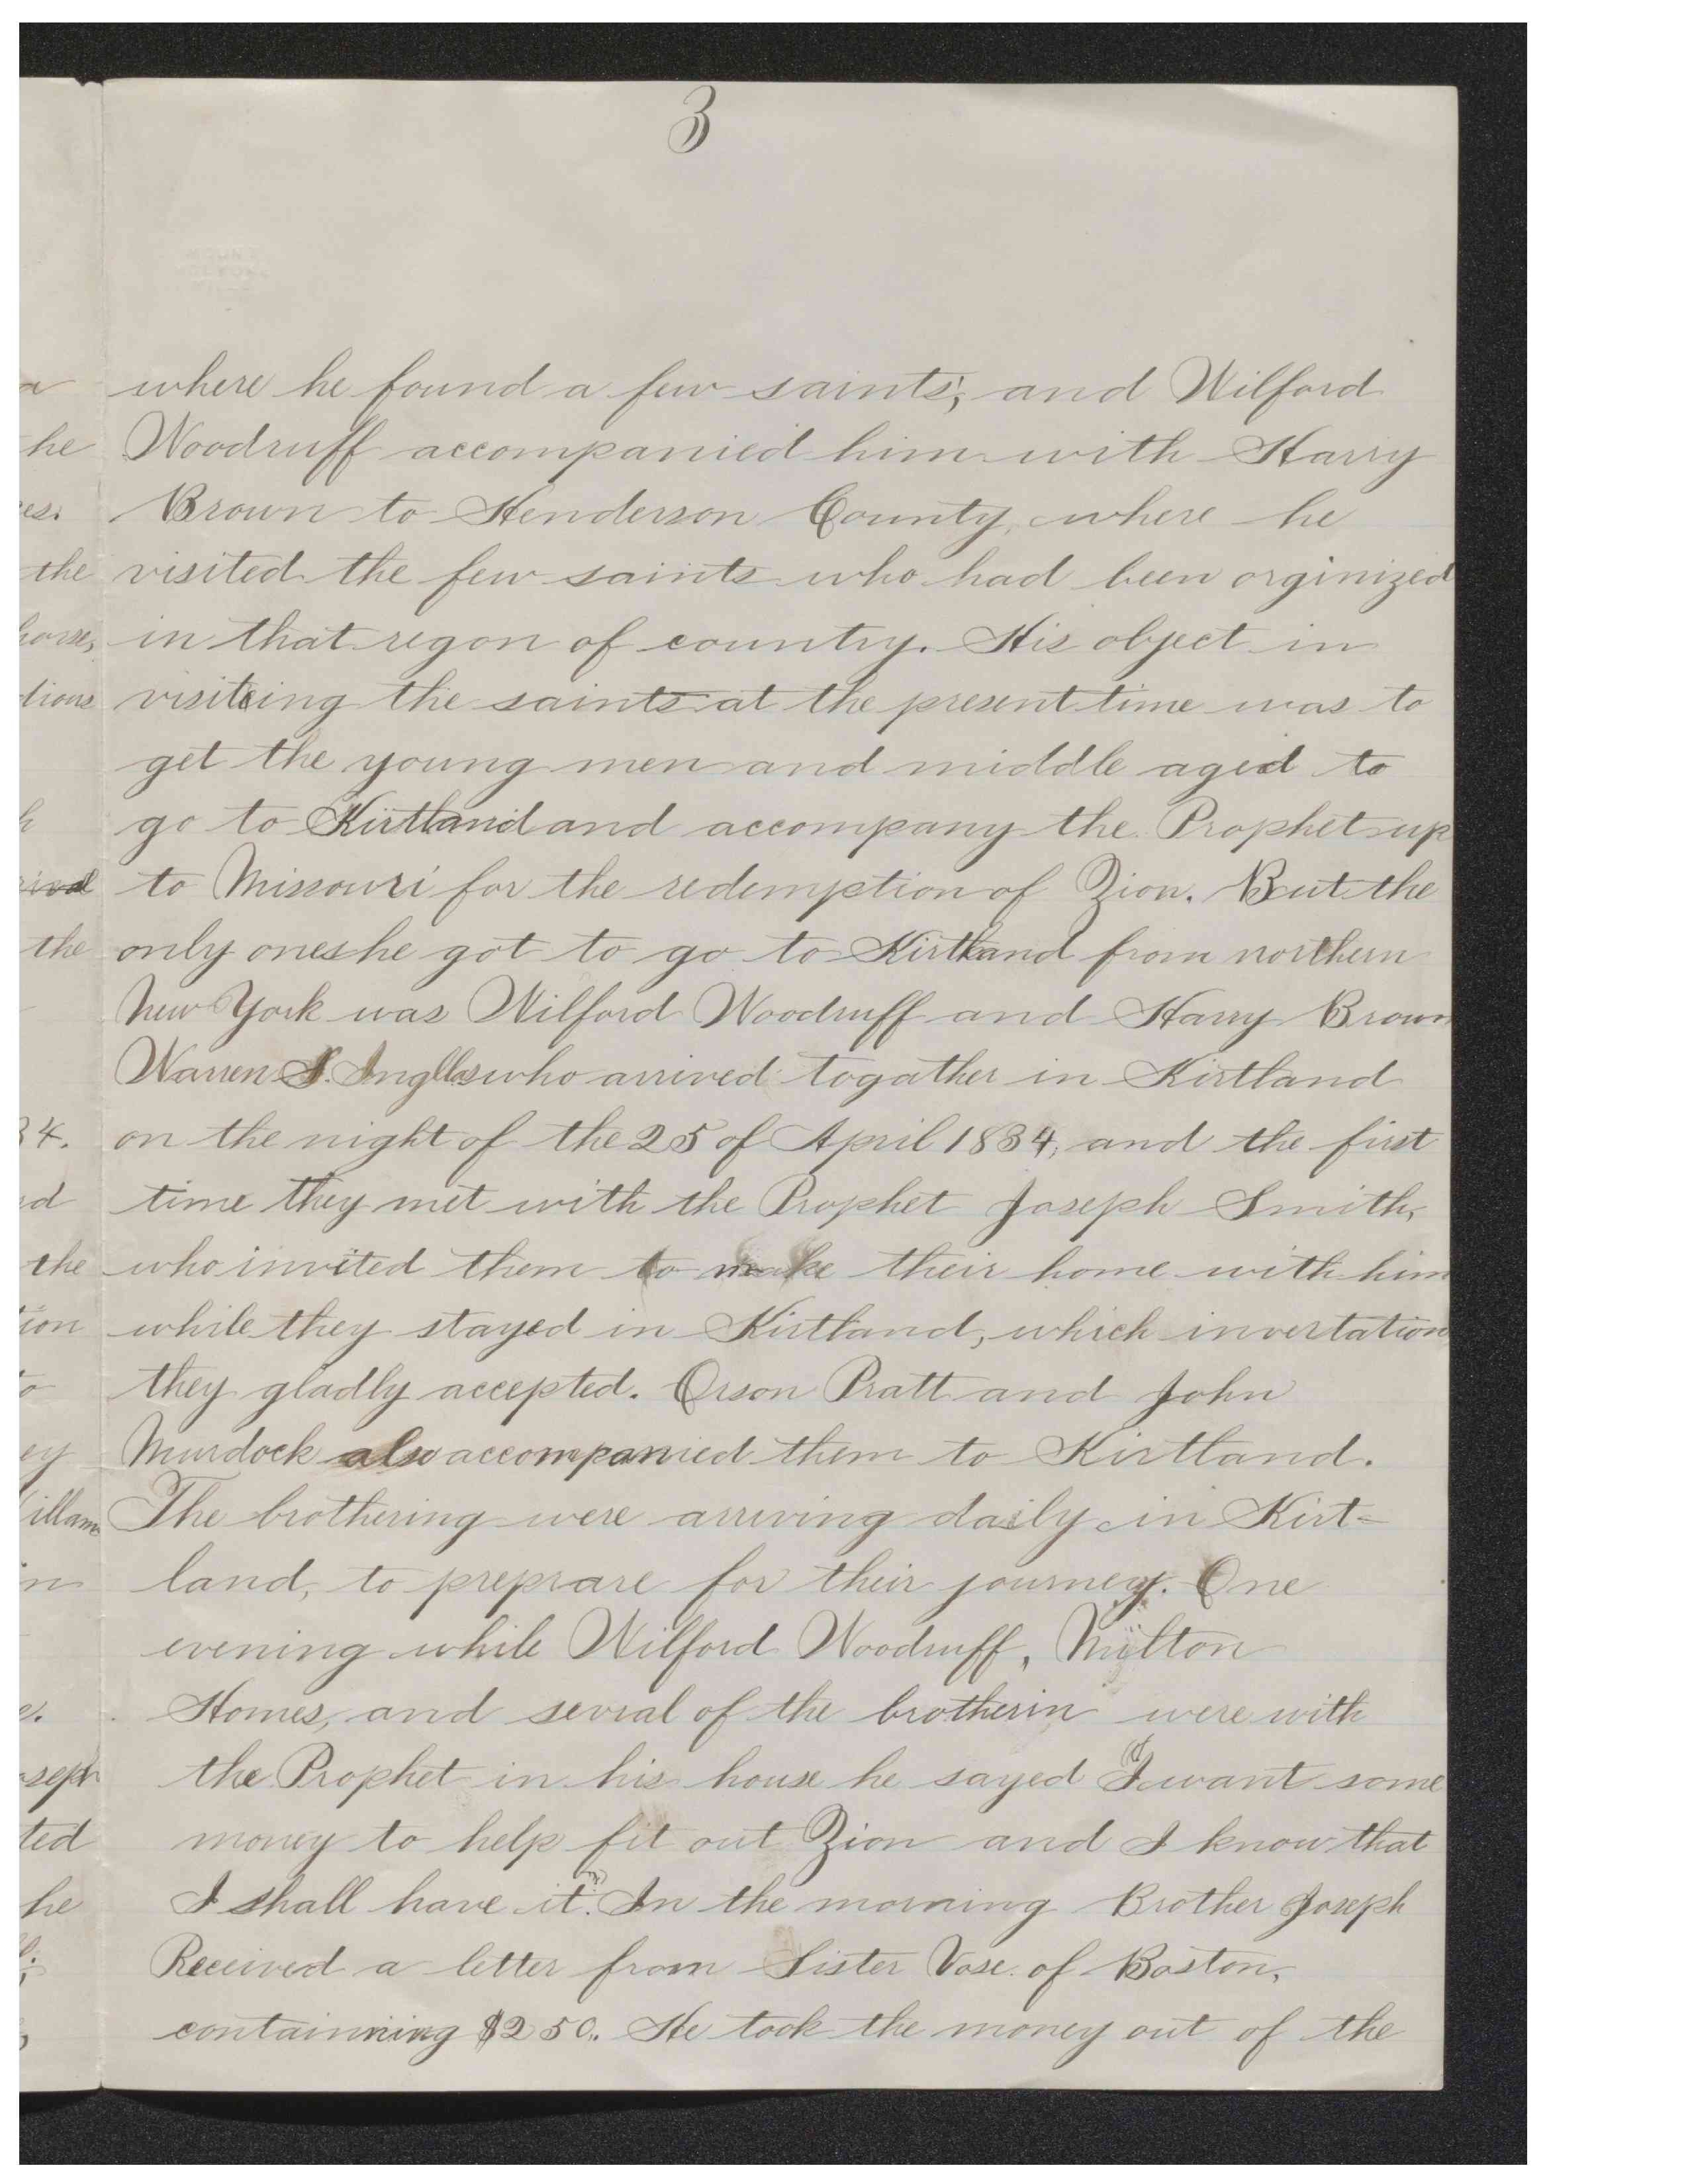 3
where he found a few saints; and Wilford
Woodruff accompanied him with Harry
Brown to Henderson County, where he
visited the few saints who had been orginized
in that regon of country. His object in
visiteing the saints at the present time was to
get the young men and middle aged to
go to Kirtland and accompany the Prophet up
to Missouri for the redemption of Zion. But the
only ones he got to go to Kirtland from northern
New York was Wilford Woodruff and Harry Brown
Warren S. Inglles who arrived togather in Kirtland
on the night of the 25 of April 1834, and the first
time they met with the Prophet Joseph Smith,
who invited them to make their home with him
while they stayed in Kirtland, which invertation
they gladly accepted. Orson Pratt and John
Murdock also accompanied them to Kirtland.
The brothering were arriving daily in Kirt=
land, to preprare for their journey. One
evening while Wilford Woodruff, Milton
Homes, and sevral of the brotherin were with
the Prophet in his house he sayed "I want some
money to help fit out Zion and I know that
I shall have it." In the morning Brother Joseph
Received a letter from Sister Vose of Boston,
containning $250.. He took the money out of the
he
es.
the
horse,
tions
the
34.
the
tion
ey
illam
seph
ted
he